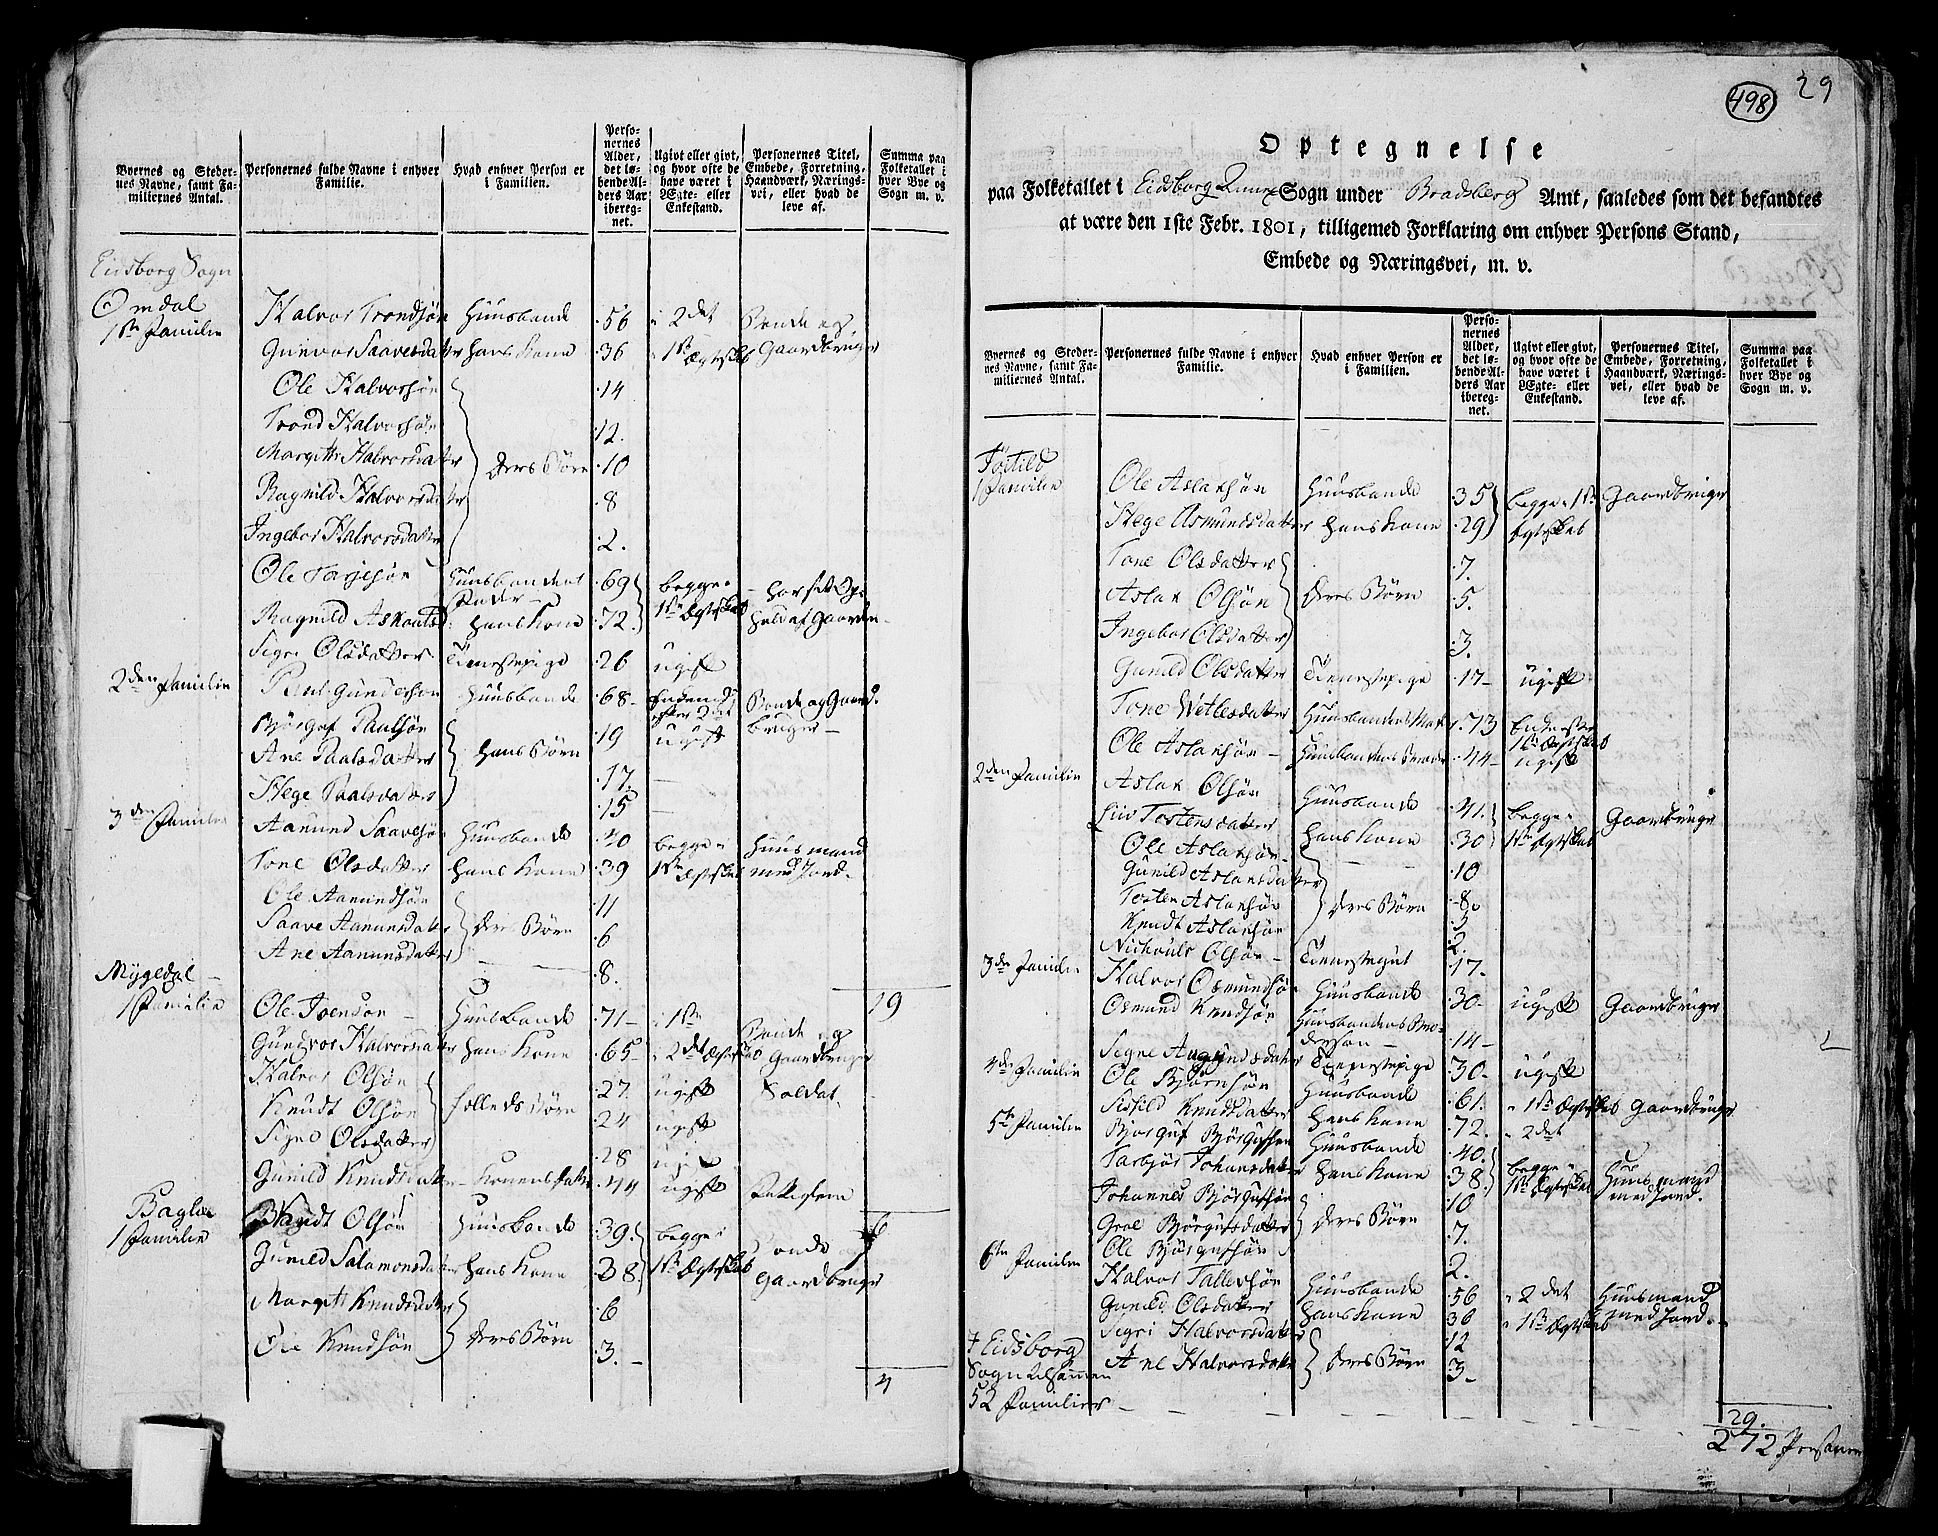 Byernes og Steder-
nes Navne, samt Fa-
miliernes Antal.
Personernes fulde Navne i enhver
Familie.
Hvad enhver Person er
i Familien.
Perso-
nernes
Alder,
det lø-
bende Al-
ders Aar
iberegnet.
Ugivt eller givt,
og hvor ofte de
have været i
Ægte- eller
Enkestand.
Personernes Titel,
Embede, Forretning,
Haandværk, Nærings-
vei, eller hvad de
leve af.
Summa paa
Folketallet i
hver Bye og
Sogn m. v.
Eidsborg Sogn
Omdal
1ste Familie
Halvor Trondsøn Huusbonde 56 i 2det Bonde og
Gunvor Saavesdatter hans Kone 36 1ste Ægteskab Gaardbruger
Ole Halvorsøn 14
Trond Halvorsøn 12.
Margith Halvorsdatter deres Børn 10
Ragnild Halvorsdatter 8
Ingebor Halvorsdatter 2.
Ole Tarjesøn Huusbondens 69 begge i
1ste Ægteskab
Ragnild Askouts hans Kone 72. hold af Gaarden
Signe Olsdatter Tienestepige 26 ugift
2den Familie Paul Gundersøn Huusbonde 68 Bonde og Gaard-
bruger
Bjørgof Paulsøn 19 ugift
Ane Paalsdatter hans Børn 17.
Hege Paalsdatter 15
3den Familie
Aamund Saavesøn Huusbonde 40 begge i Huusmand
Tone Olsdatter hans Kone 39 1ste Ægteskab med Jord
Ole Aamundsøn 11
Saave Aamunsdatter deres Børn 6
Ane Aamunsdatter 8.
19
Mygedal
1 Familie
Ole Joensøn Huusbonde 71 i 1ste Bonde og
Gunvor Halvorsdatter hans Kone 65 i 2det Ægteskab Gaardbruger
Halvor Olsøn 27. ugift Soldat
Knudt Olsøn fælleds Børn 24 ugift
Signe Olsdatter 28 ugift
Gunild Knudsdatter 44 ugift
6
Baglie
1 Familie
Knudt Olsøn Huusbonde 39. begge i Bonde og
Gunild Salamonsdatter hans Kone 38. 1ste Ægteskab Gaardbruger
Margith Knudsdatter 6
Ole Knudsøn deres Børn 3.
4
498
29
Optegnelse
paa Folketallet i Eidsborg Sogn under Bradsberg Amt, saaledes som det befandtes
at være den 1ste Febr. 1801, tilligemed Forklaring om enhver Persons Stand,
Embede og Næringsvei, m. v.
Byernes og Steder-
nes Navne, samt Fa-
miliernes Antal.
Personernes fulde Navne i enhver
Familie.
Hvad enhver Person er
i Familien.
Perso-
nernes
Alder,
det lø-
bende Al-
ders Aar
iberegnet.
Ugivt eller givt,
og hvor ofte de
have været i
Ægte- eller
Enkestand.
Personernes Titel,
Embede, Forretning,
Haandværk, Nærings-
vei, eller hvad de
leve af.
Summa paa
Folketallet i
hver Bye og
Sogn m. v.
1 Familie
Ole Aslaksøn Huusbonde 35 begge i 1ste Gaardbruger
Hege Asmundsdatter hans Kone 29 Ægteskab
Tone Olsdatter 7.
Aslak Olsøn deres Børn 5.
Ingebor Olsdatter 3.
Gunild Olsdatter Tienestepige 17 ugift
Tone Wetlesdatter 73
1ste Ægteskab
Ole Aslaksøn 44 ugift
2den Familie
Aslak Olsøn Huusbonde 41. begge i Gaardbruger
Liv Tostensdatter hans Kone 30 1ste Ægteskab
Ole Aslaksøn 10
Gunild Aslaksdatter
Tosten Aslaksøn deres Børn 8.
Knudt Aslaksøn 2.
Olsøn Tienestegut 17.
3de Familie
Halvor Osmundsøn Huusbonde 30 ugift Gaardbruger
Osmund Knudsøn 14
Signe Augundsdatter Tienestepige 30 ugift
4de Familie
Ole Bjørnsøn Huusbonde 61. i 1ste Ægteskab Gaardbruger
Knudsdatter hans Kone 72. i 2det
5te Familie
Bjørguf Bjørgufsen Huusbonde 40. begge i Huusmand
Tarbjør Johansdatter hans Kone 38. 1ste Ægteskab med Jord.
Johannes Bjørgufsøn 10
Groe Bjørgufsdatter deres Børn 7.
Ole Bjørgufsøn 2.
6te Familie
Halvor Tallefsøn Huusbonde 56 i 2det Huusmand
Gunild Olsdatter hans Kone 36 i 1ste Ægteskab med Jord.
Sigri Halvorsdatter 12
Ane Halvorsdatter deres Børn 3
Eidsborg
Sogn
52 Familier
29.
272 Personer